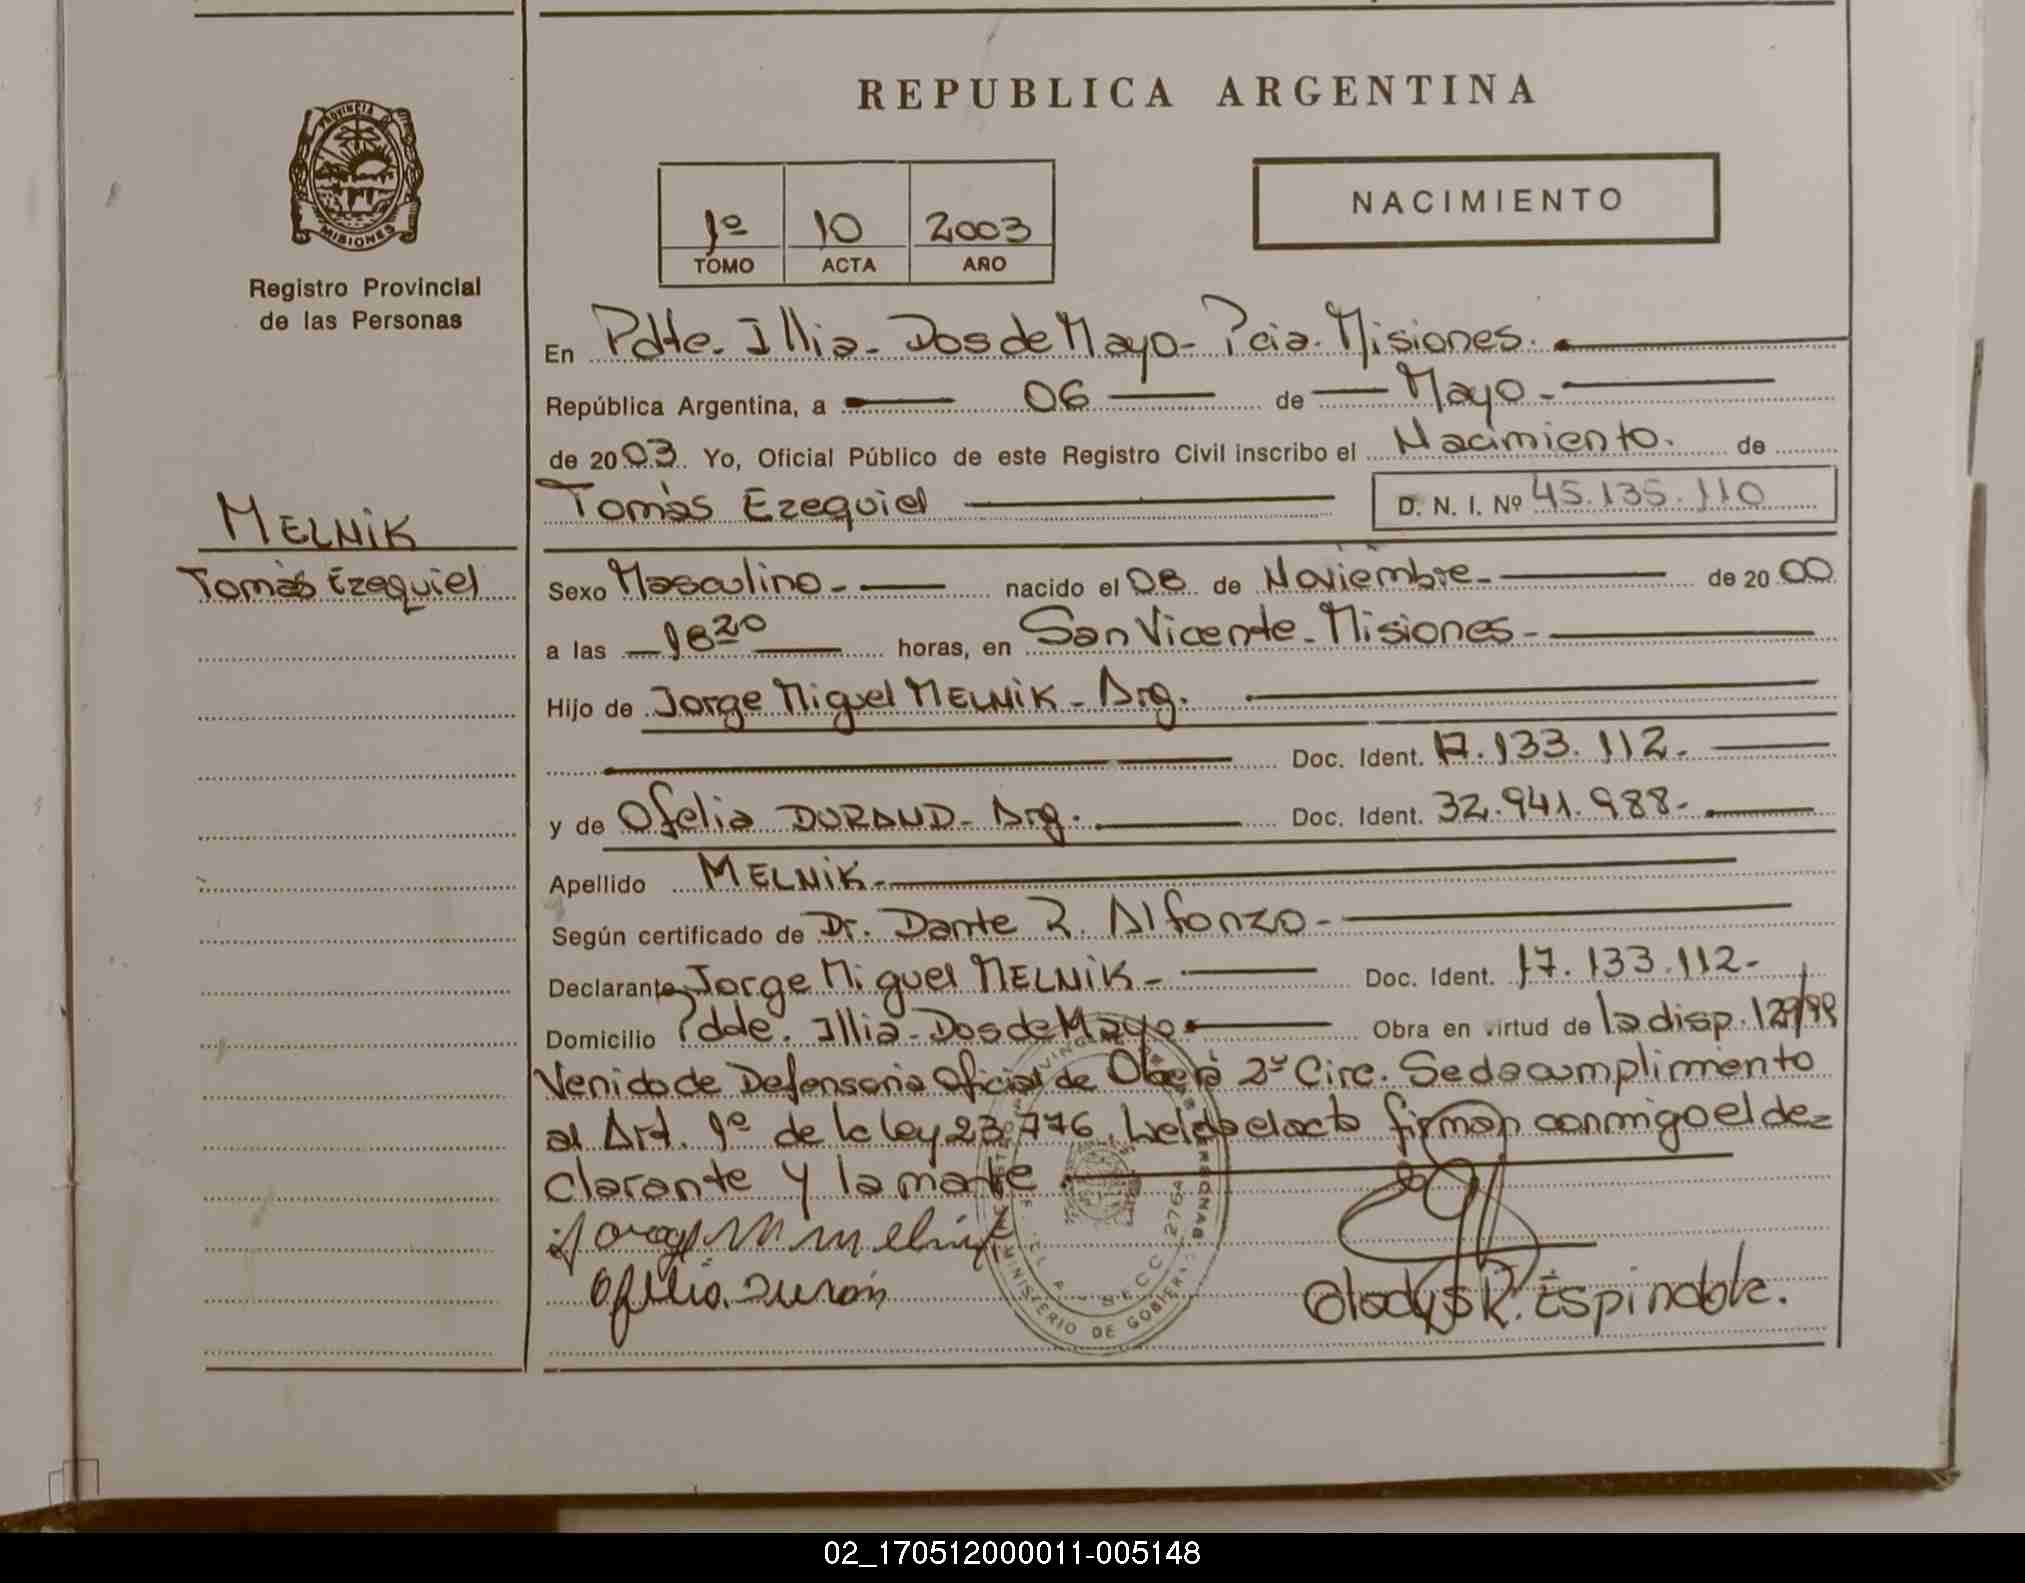 REPUBLICA ARGENTINA
PROVINCIA DE MISIONES
Registro Provincial
de las Personas
1º 10 2003
TOMO ACTA AÑO
NACIMIENTO
En Pdte. Illia - Dos de Mayo - Pcia. Misiones.
República Argentina, a 06 de Mayo -
de 2003. Yo, Oficial Público de este Registro Civil inscribo el Nacimiento. de
Tomàs Ezequiel D. N. I. Nº 45.135.110
MELNIK
Tomàs Ezequiel
Sexo Masculino - nacido el 08 de Noviembre - de 2000
a las 18 20 horas, en San Vicente - Misiones -
Hijo de Jorge Miguel MELNIK - Arg.
Doc. Ident. 17.133.112.-
y de Ofelia DURAND - Arg. Doc. Ident. 32.941.988-
Apellido MELNIK -
Según certificado de Dr. Dante R. Alfonzo -
Declarante Jorge Miguel MELNIK - Doc. Ident. 17.133.112-
Domicilio Pdde. Illia - Dos de Mayo Obra en virtud de la disp. 129/99
Venido de Defensoria Oficial de Oberà 2º Circ. Se da cumplimiento
al Art. 1º de la ley 23.776. Leída el acta firman conmigo el de=
clarante y la madre
Jorge M melnik
Ofelia Duran
Gladys R. Espindola.
MINISTERIO DE GOBIERNO
SECC 2764
02_170512000011-005148